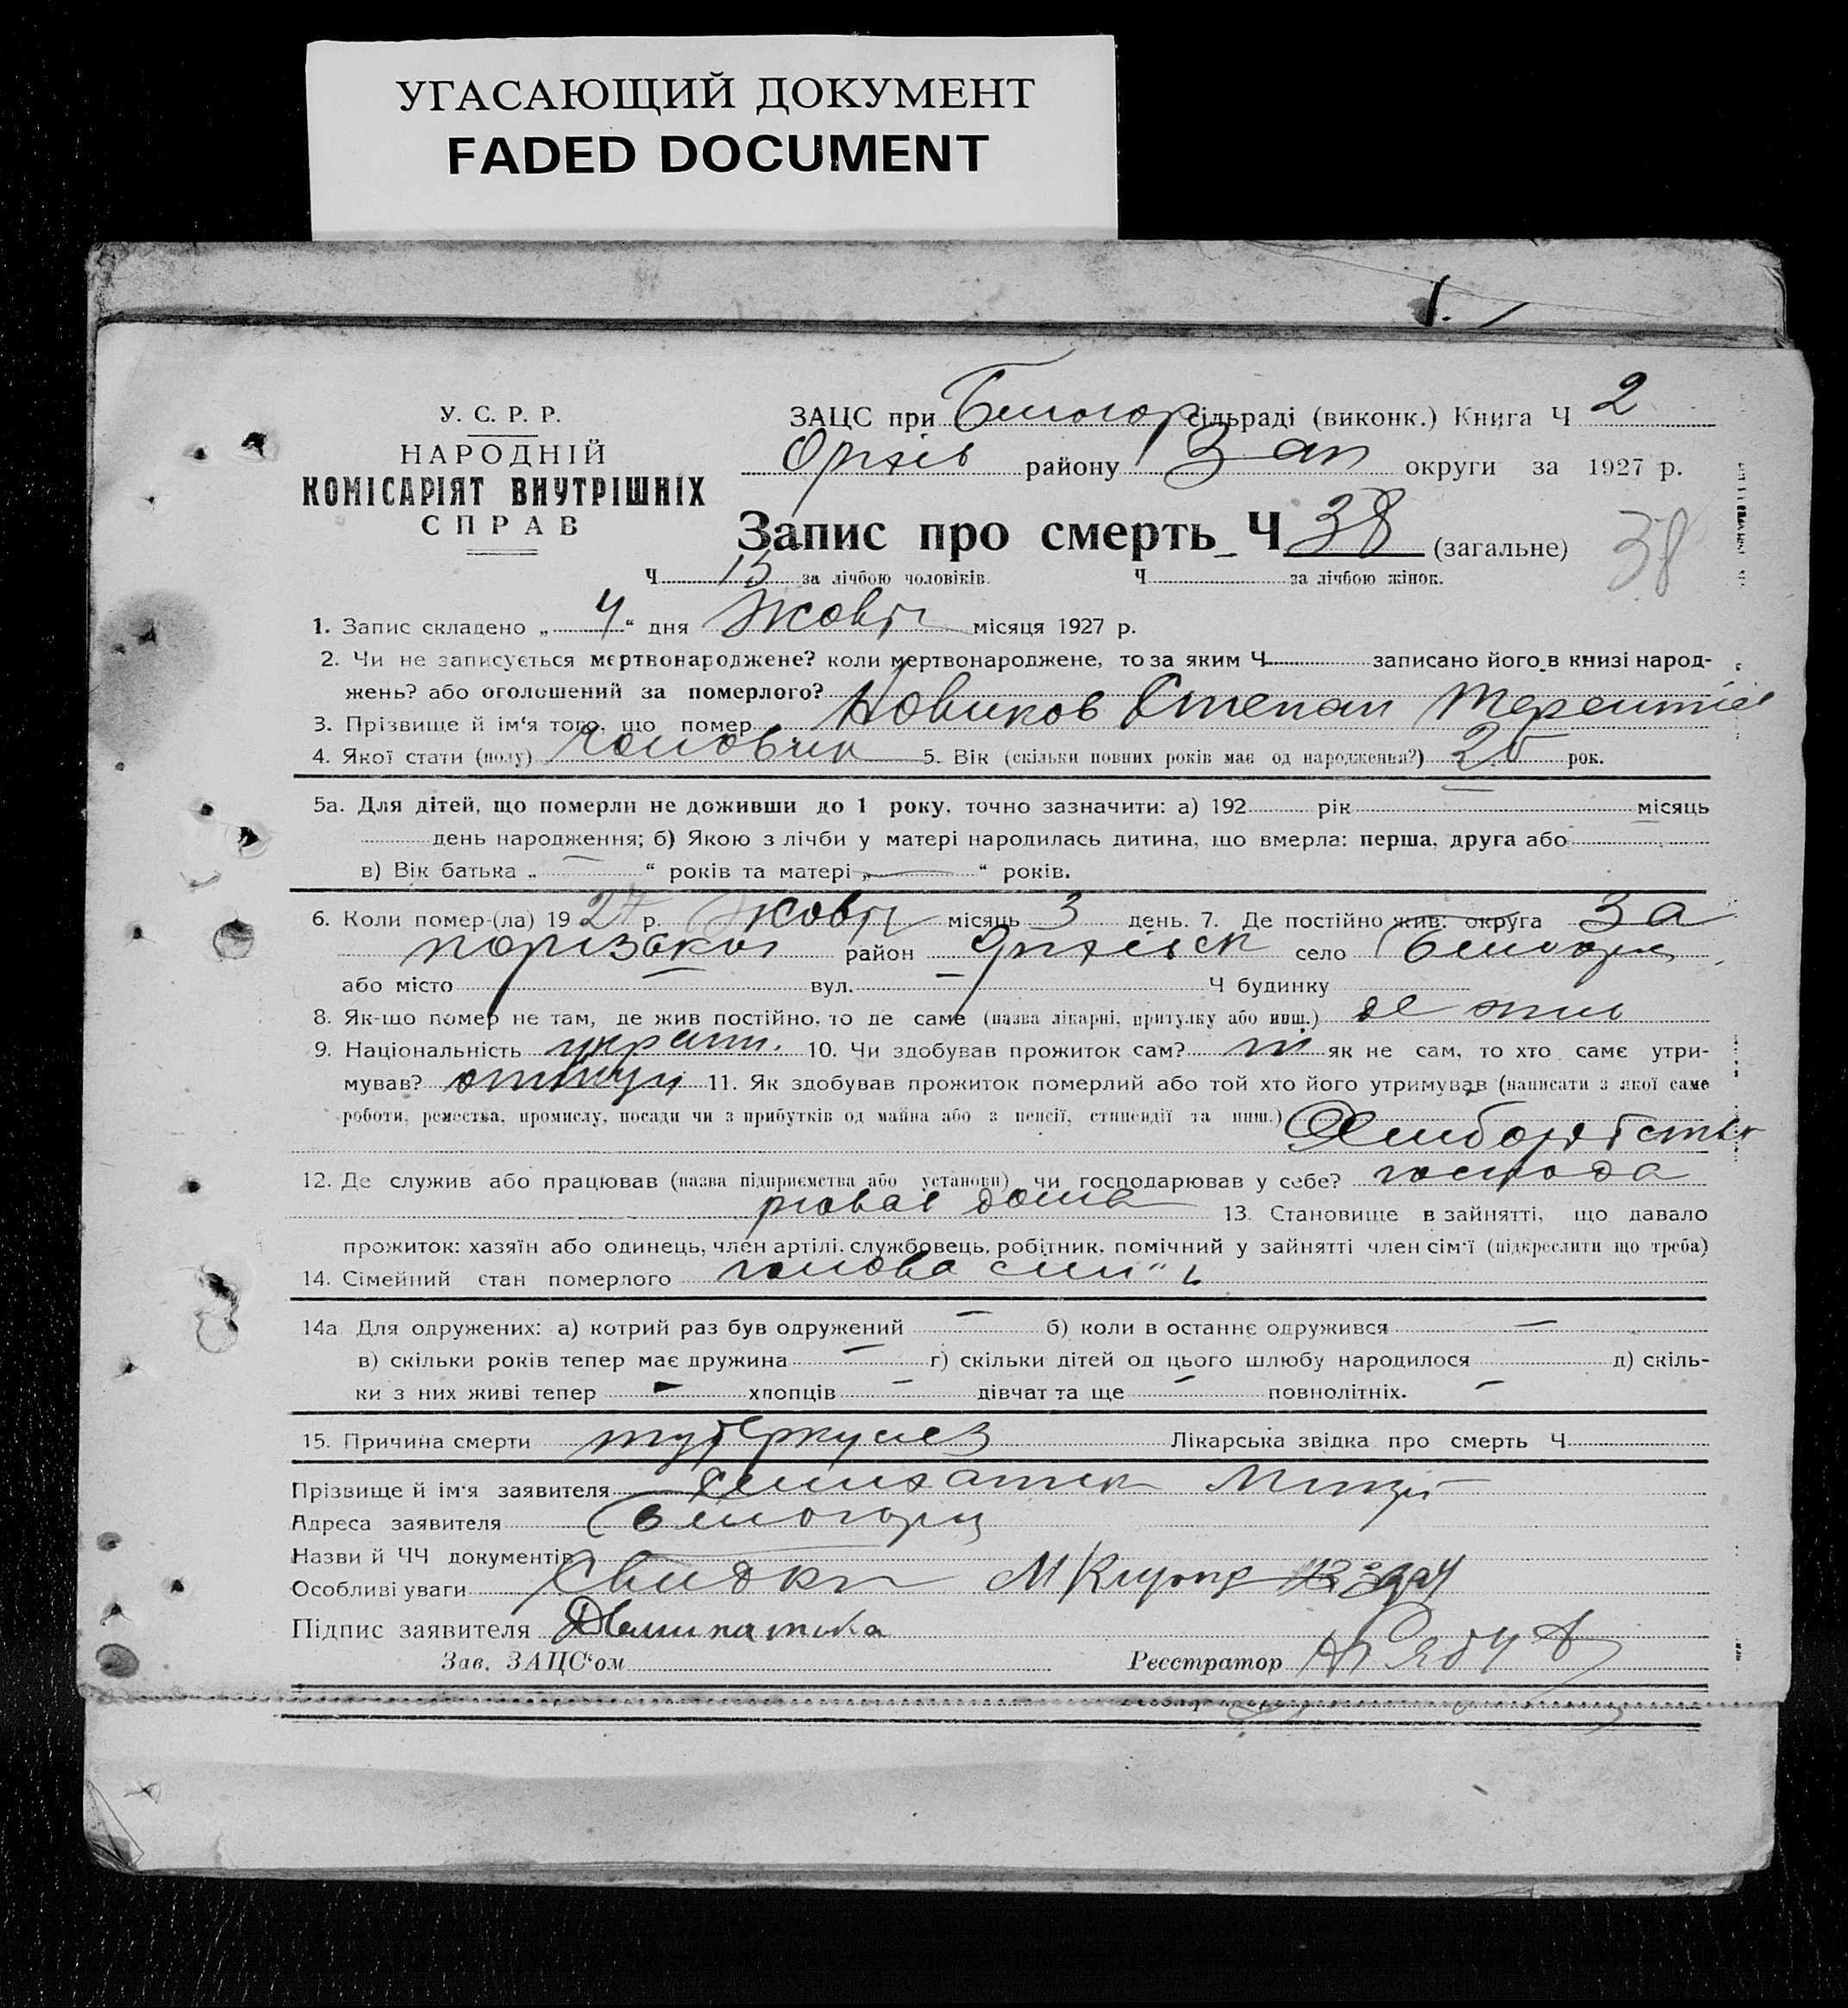 УГАСАЮЩИЙ ДОКУМЕНТ
FADED DOCUMENT
У. С. Р. Р.
НАРОДНІЙ
КОМІСАРІЯТ ВНУТРІШНІХ
СПРАВ
ЗАЦС при Белогор сільраді (виконк.) Книга Ч 2
Оріхів району Зап округи за 1927 р.
Запис про смерть Ч 38 (загальне) 38
Ч 15 за лічбою чоловіків. Ч за лічбою жінок.
1. Запис складено „ 4 “ дня Жовт місяця 1927 р.
2. Чи не записується мертвонароджене? коли мертвонароджене, то за яким Ч записано його в книзі народ-
жень? або оголошений за померлого?
3. Прізвище й ім‘я того, що помер Новиков Степан Терентіев
4. Якої стати (полу) чоловічи 5. Вік (скільки повних років має од народження?) 25 рок.
5а. Для дітей, що померли не доживши до 1 року, точно зазначити: а) 192 рік місяць
день народження; б) Якою з лічби у матері народилась дитина, що вмерла: перша, друга або
в) Вік батька „ “ років та матері „ “ років.
6. Коли помер-(ла) 19 27 р. Жовт місяць 3 день. 7. Де постійно жив: округа За
поризько район Оріхівск село Белогорц
або місто — вул. — Ч будинку
8. Як-що помер не там, де жив постійно, то де саме (назва лікарні, притулку або инш.) де жив
9. Національність украін. 10. Чи здобував прожиток сам? ні як не сам, то хто саме утри-
мував? 11. Як здобував прожиток померлий або той хто його утримував (написати з якої саме
роботи, ремества, промислу, посади чи з прибутків од майна або з пенсії, стипендії та инш.)
Хлиборобство
12. Де служив або працював (назва підприємства або установи) чи господарював у себе? господа
рював дома 13. Становище в зайнятті, що давало
прожиток: хазяїн або одинець, член артілі, службовець, робітник, помічний у зайнятті член сім‘ї (підкреслити що треба)
14. Сімейний стан померлого голова сим"ь
14а Для одружених: а) котрий раз був одружений — б) коли в останнє одружився —
в) скільки років тепер має дружина — г) скільки дітей од цього шлюбу народилося д) скіль-
ки з них живі тепер — хлопців — дівчат та ще — повнолітніх. —
15. Причина смерти туберкулез Лікарська звідка про смерть Ч
Прізвище й ім‘я заявителя
Адреса заявителя Белогорц
Назви й ЧЧ документів
Особливі уваги
Підпис заявителя
Зав. ЗАЦС‘ом Реєстратор